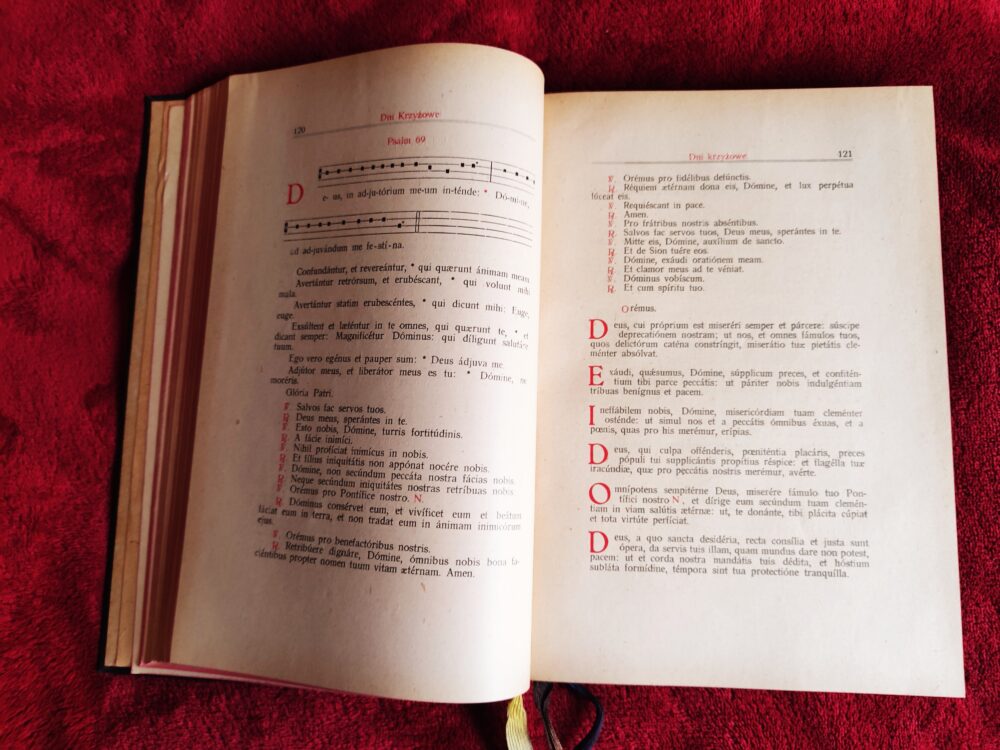 120 Dni Krzyżowe
Psalm 69
De- us, in ad-ju-tórium me-um in-ténde: * Dó-mi-ne,
ad ad-juvándum me fe-stí-na.
Confundántur, et revereántur, * qui quærunt ánimam meam.
Avertántur retrórsum, et erubéscant, * qui volunt mihi
mala.
Avertántur statim erubescéntes, * qui dicunt mihi: Euge,
euge.
Exsúltent et læténtur in te omnes, qui quærunt te, * et
dicant semper: Magnificétur Dóminus: qui díligunt salutáre
tuum.
Ego vero egénus et pauper sum: * Deus ádjuva me.
Adjútor meus, et liberátor meus es tu: * Dómine, ne
moréris.
Glória Patri.
℣. Salvos fac servos tuos.
℟. Deus meus, sperántes in te.
℣. Esto nobis, Dómine, turris fortitúdinis.
℟. A fácie inimíci.
℣. Nihil profíciat inimícus in nobis.
℟. Et fílius iniquitátis non appónat nocére nobis.
℣. Dómine, non secúndum peccáta nostra fácias nobis.
℟. Neque secúndum iniquitátes nostras retríbuas nobis.
℣. Orémus pro Pontífice nostro. N.
℟. Dóminus consérvet eum, et vivíficet eum et beátum
fáciat eum in terra, et non tradat eum in ánimam inimicórum
ejus.
℣. Orémus pro benefactóribus nostris.
℟. Retribúere dignáre, Dómine, ómnibus nobis bona fa-
ciéntibus propter nomen tuum vitam ætérnam. Amen.
Dni krzyżowe 121
℣. Orémus pro fidélibus defúnctis.
℟. Réquiem ætérnam dona eis, Dómine, et lux perpétua
lúceat eis.
℣. Requiéscant in pace.
℟. Amen.
℣. Pro frátribus nostris abséntibus.
℟. Salvos fac servos tuos, Deus meus, sperántes in te.
℣. Mitte eis, Dómine, auxílium de sancto.
℟. Et de Sion tuére eos.
℣. Dómine, exáudi oratiónem meam.
℟. Et clamor meus ad te véniat.
℣. Dóminus vobíscum.
℟. Et cum spíritu tuo.
Orémus.
Deus, cui próprium est miseréri semper et párcere: súscipe
deprecatiónem nostram; ut nos, et omnes fámulos tuos,
quos delictórum caténa constríngit, miserátio tuæ pietátis cle-
ménter absólvat.
Exáudi, quǽsumus, Dómine, súpplicum preces, et confitén-
tium tibi parce peccátis: ut páriter nobis indulgéntiam
tríbuas benígnus et pacem.
Ineffábilem nobis, Dómine, misericórdiam tuam cleménter
osténde: ut simul nos et a peccátis ómnibus éxuas, et a
pœnis, quas pro his merémur, erípias.
Deus, qui culpa offénderis, pœniténtia placáris, preces
pópuli tui supplicántis propítius réspice: et flagélla tuæ
iracúndiæ, quæ pro peccátis nostris merémur, avérte.
Omnípotens sempitérne Deus, miserére fámulo tuo Pon-
tífici nostro N., et dírige eum secúndum tuam clemén-
tiam in viam salútis ætérnæ: ut, te donánte, tibi plácita cúpiat
et tota virtúte perfíciat.
Deus, a quo sancta desidéria, recta consília et justa sunt
ópera, da servis tuis illam, quam mundus dare non potest,
pacem: ut et corda nostra mandátis tuis dédita, et hóstium
subláta formídine, témpora sint tua protectióne tranquílla.